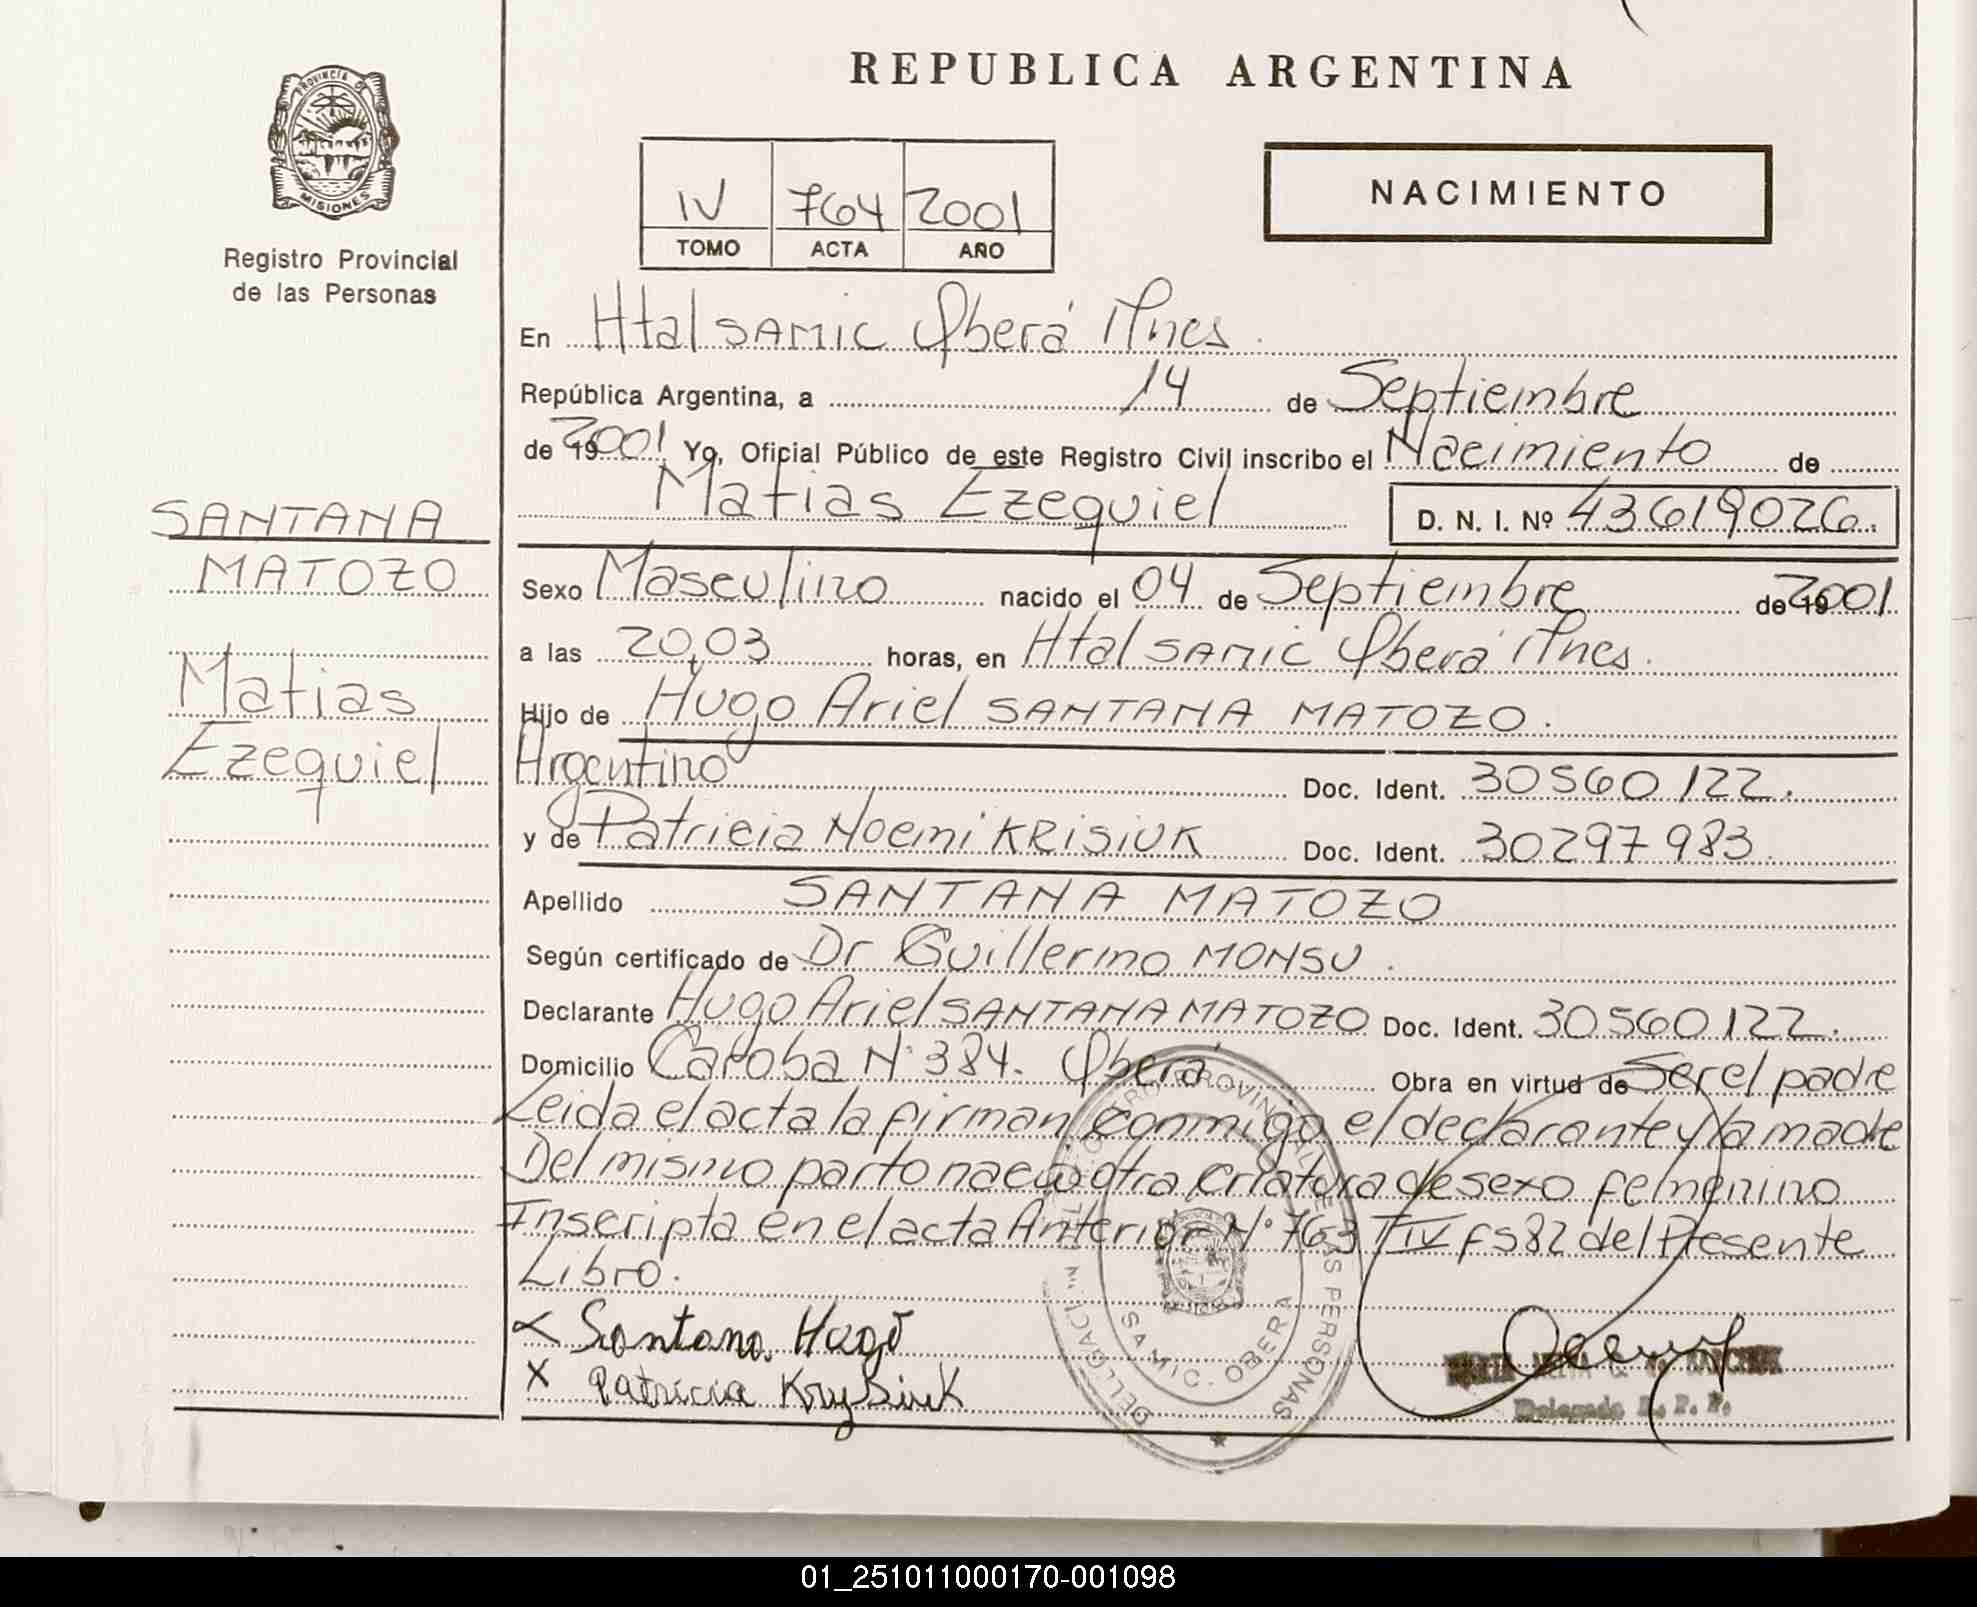 REPUBLICA ARGENTINA
PROVINCIA DE
MISIONES
Registro Provincial
de las Personas
IV 764 2001
TOMO ACTA AÑO
NACIMIENTO
En Htal SAMIC Oberá Mnes.
República Argentina, a 14 de Septiembre
de 2001 Yo, Oficial Público de este Registro Civil inscribo el Nacimiento de
Matias Ezequiel D. N. I. Nº 43619026.
SANTANA
MATOZO
Matias
Ezequiel
Sexo Masculino nacido el 04 de Septiembre de 2001
a las 20,03 horas, en Htal SAMIC Oberá Mnes.
Hijo de Hugo Ariel SANTANA MATOZO.
Argentino Doc. Ident. 30560122.
y de Patricia Noemi KRISIUK Doc. Ident. 30297983.
Apellido SANTANA MATOZO
Según certificado de Dr Guillermo MONSU.
Declarante Hugo Ariel SANTANA MATOZO Doc. Ident. 30560122.
Domicilio Caroba N° 384. Oberá Obra en virtud de Ser el padre
Leida el acta la firman conmigo el declarante y la madre
Del mismo parto nacio otra criatura de sexo femenino
Inscripta en el acta Anterior N° 763 T IV fs 82 del Presente
Libro.
x Santana Hugo
x Patricia Krysiuk
REGISTRO PROVINCIAL DE LAS PERSONAS
DELEGACION
SAMIC. OBERA
Delegada R. P. P.
01_251011000170-001098